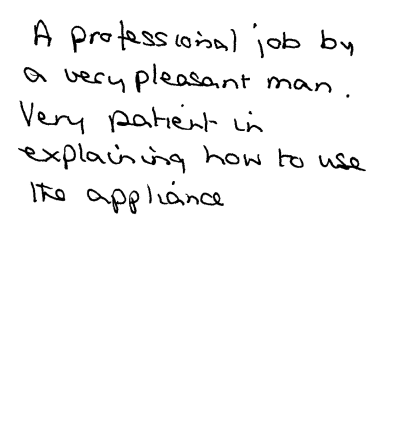 A professional job by
a very pleasant man.
Very patient in
explaining how to use
the appliance